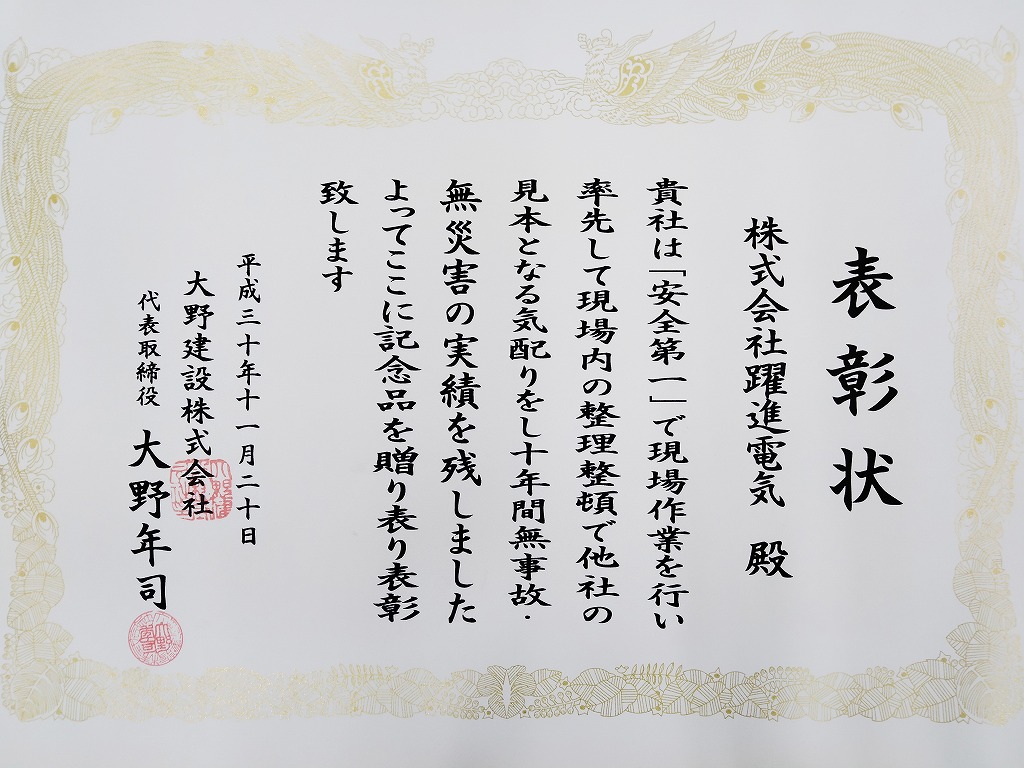 表彰状
株式会社躍進電気 殿
貴社は「安全第一」で現場作業を行い
率先して現場内の整理整頓で他社の
見本となる気配りをし十年間無事故・
無災害の実績を残しました
よってここに記念品を贈り表り表彰
致します
平成三十年十一月二十日
大野建設株式会社
代表取締役 大野年司